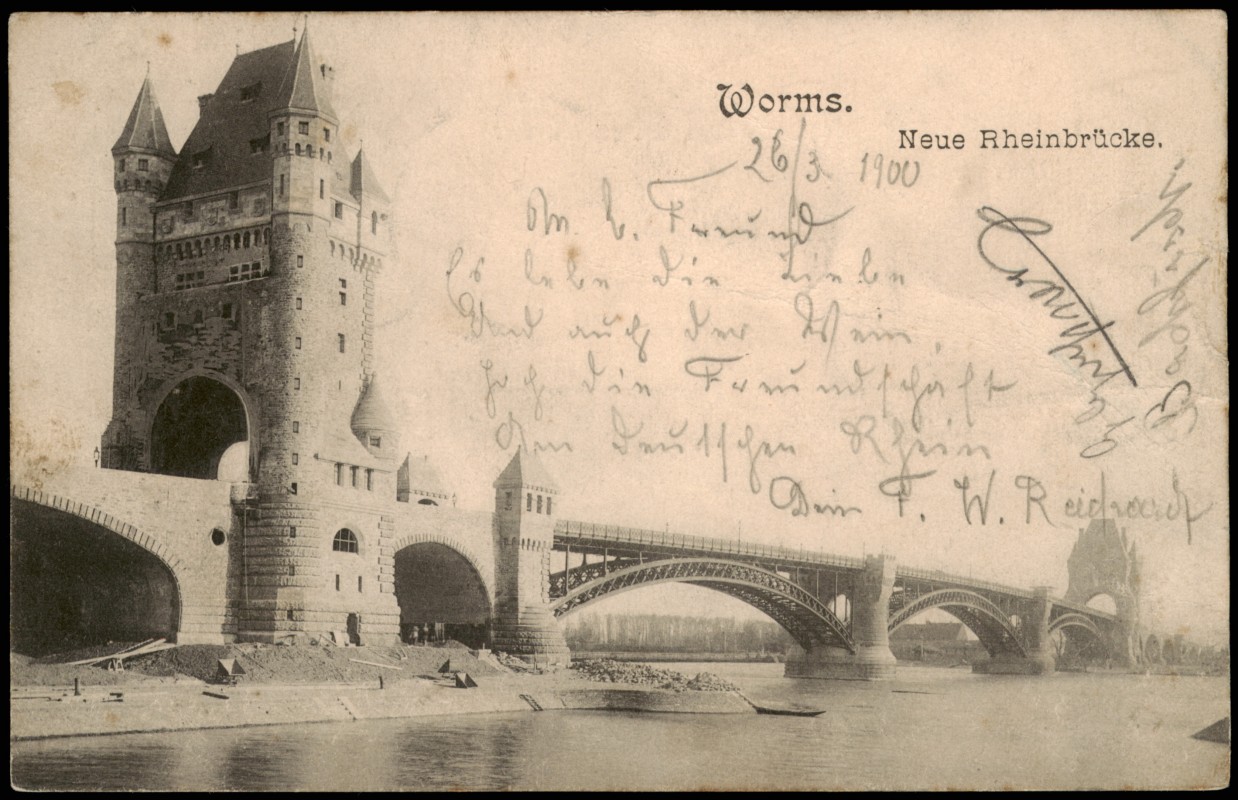 Worms.
Neue Rheinbrücke.
26/3. 1900
M. l. Freund
Es lebe die Liebe
Und auch der Wein,
Hoch die Freundschaft
Am Deutschen Rhein
Dein F. W. Reichardt